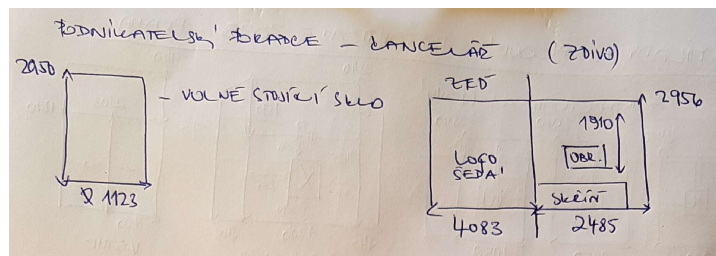 PODNIKATELSKÝ PORADCE – KANCELÁŘ (ZDIVO)
2950
– VOLNĚ STOJÍCÍ SKLO
1123
ZEĎ
2956
1910
LOGO
ŠEDÁ
OBR.
SKŘÍŇ
4083
2485